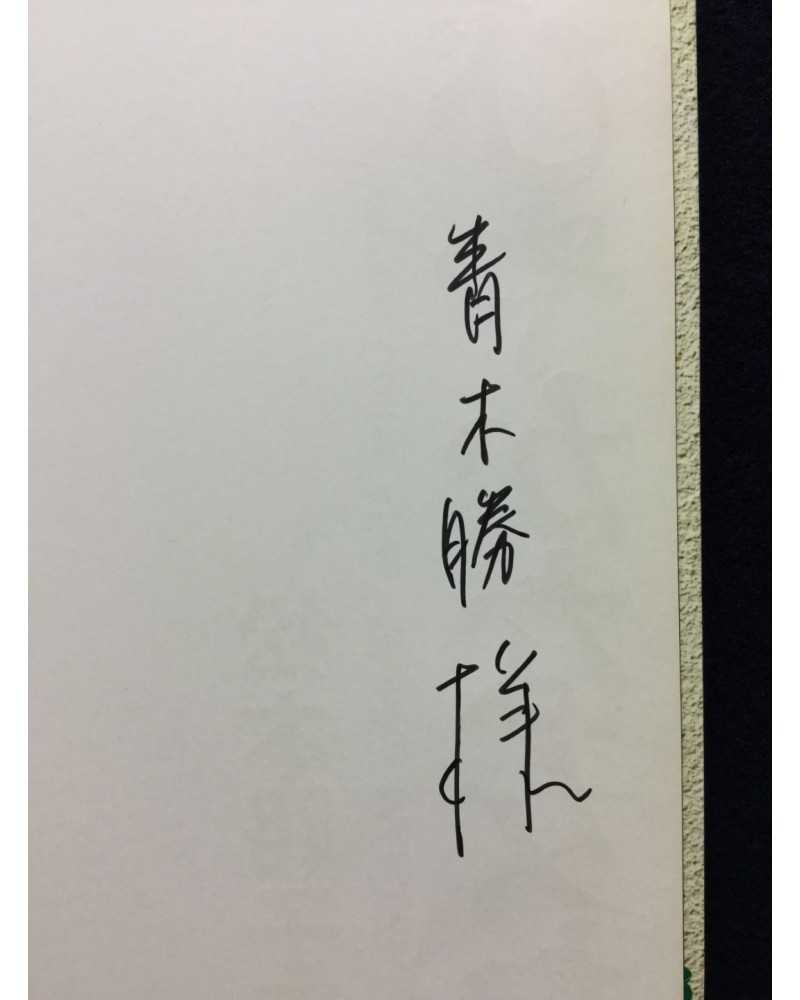 青木勝様